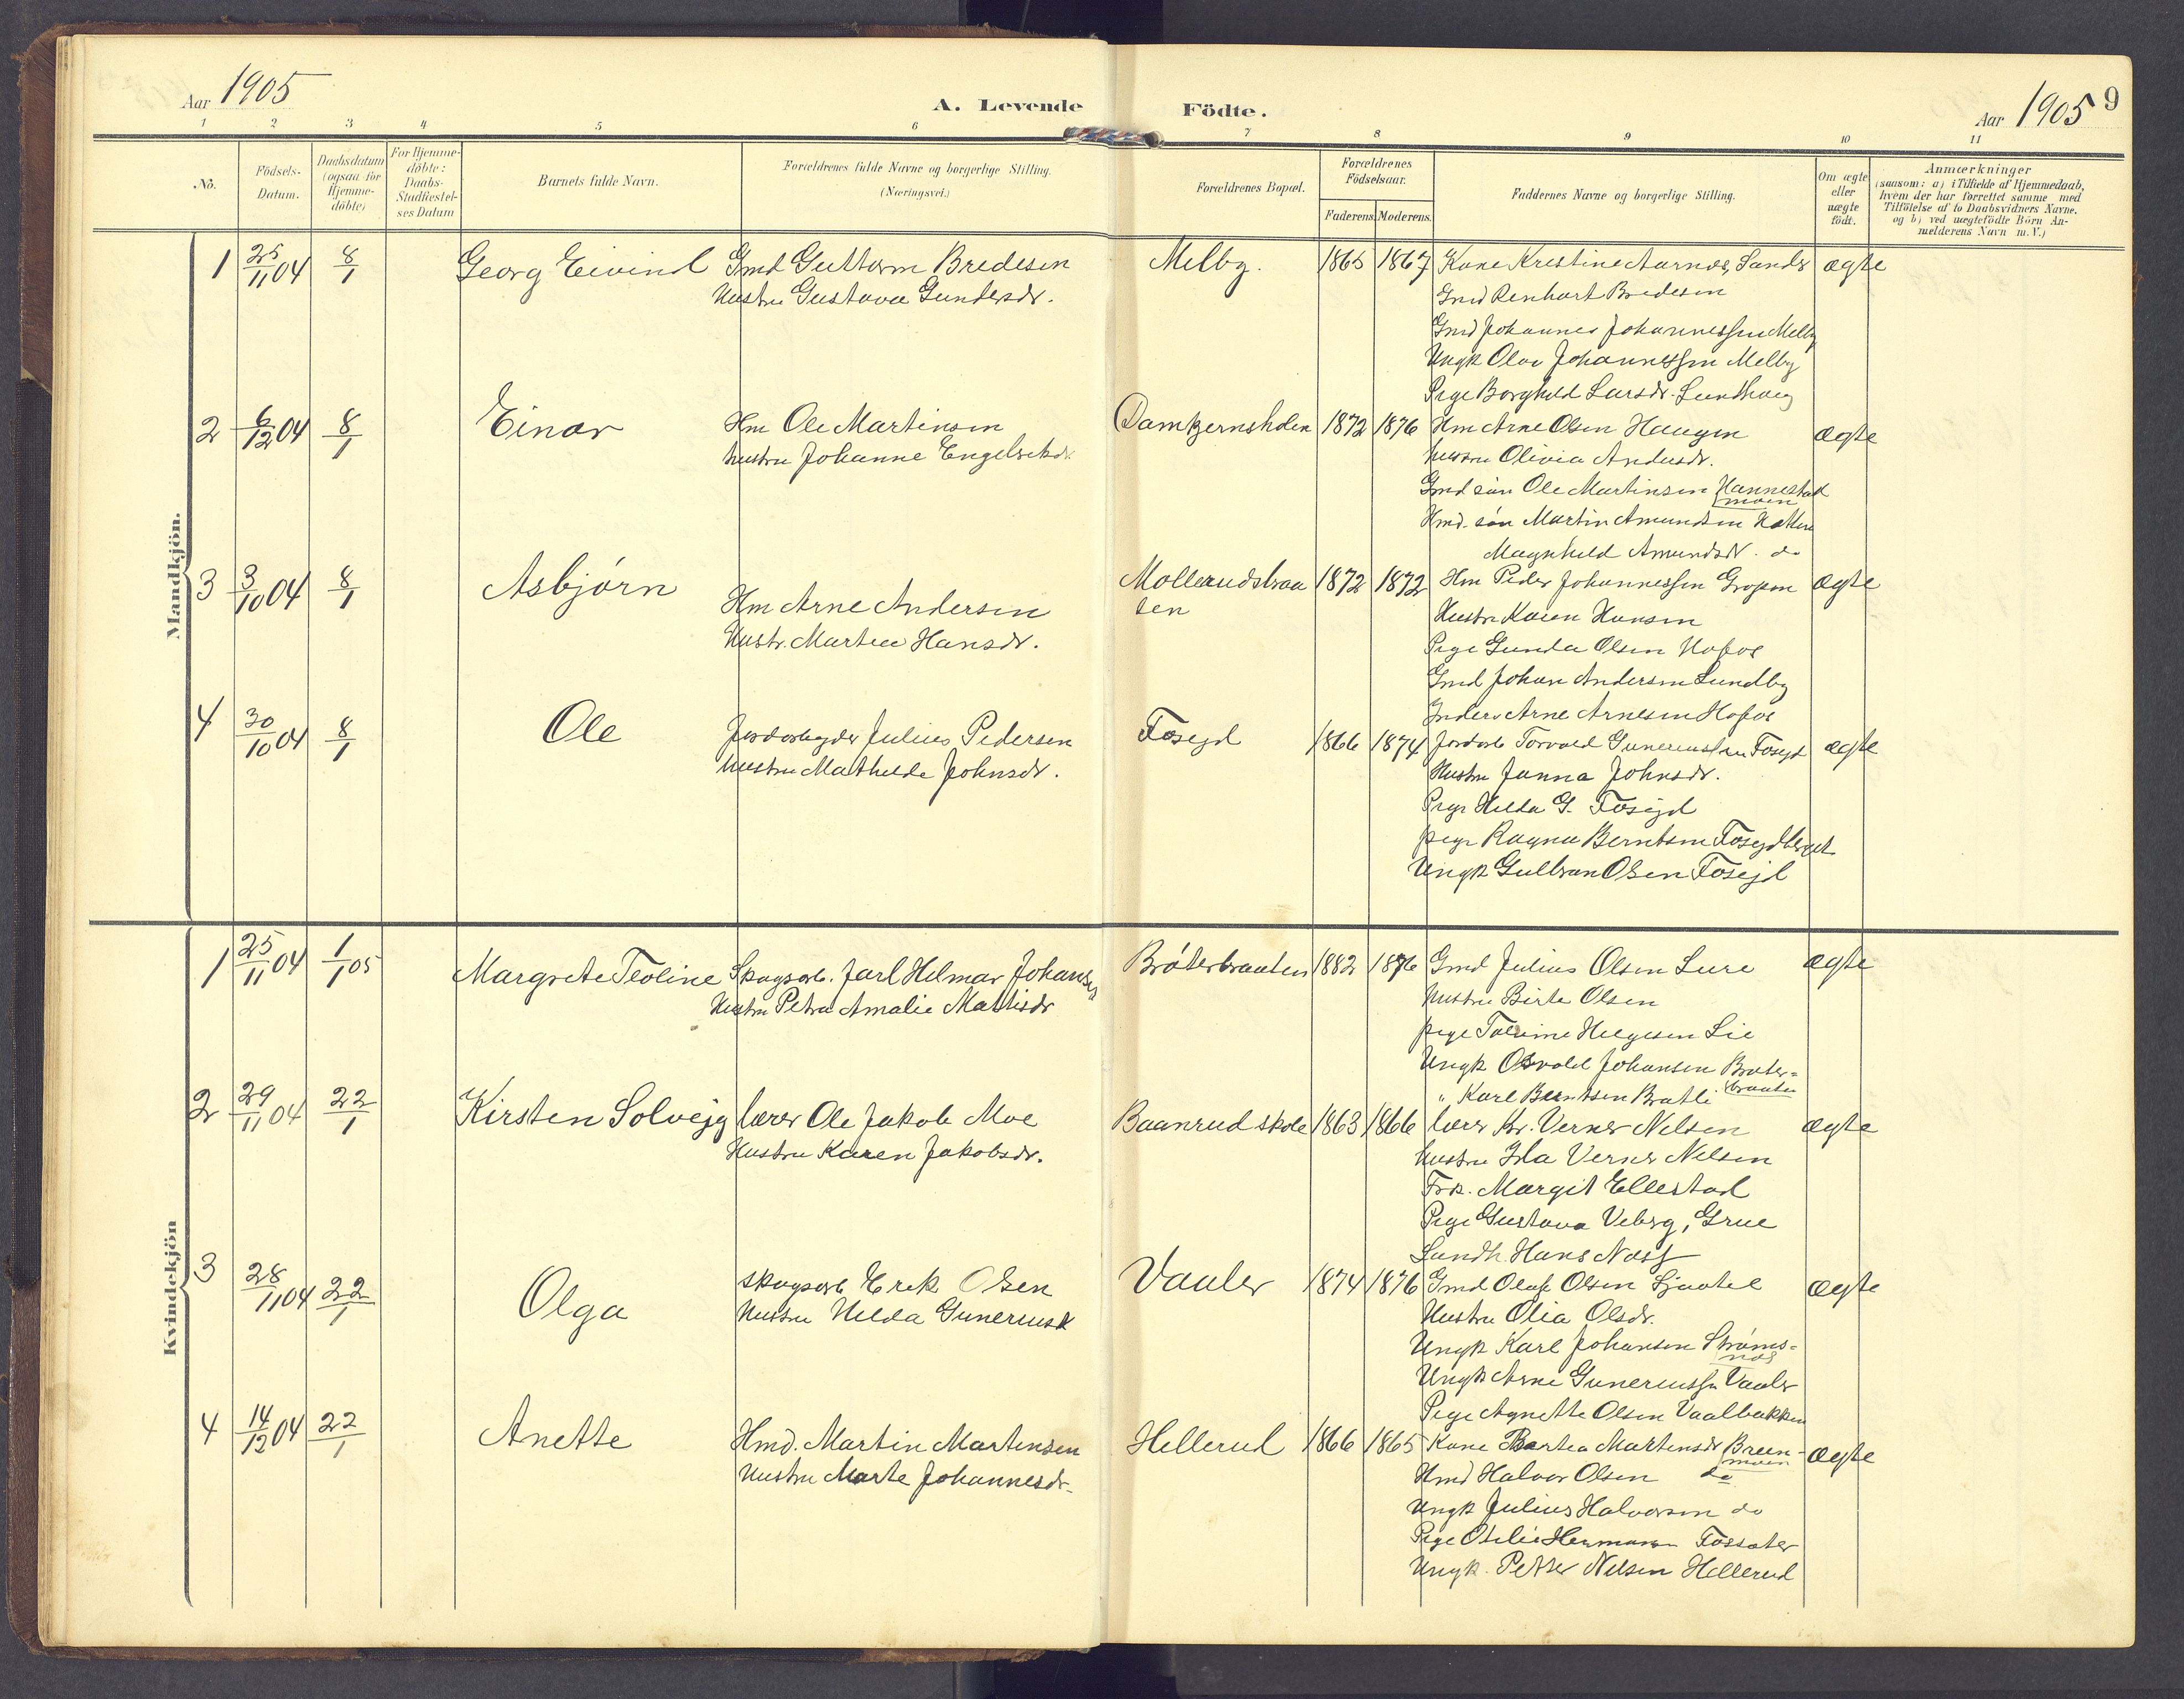 Aar 1905
A. Levende Födte.
Aar 1905 9
1 2 3 4 5 6 7 8 9 10 11
No.
Födsels-Datum.
Daabsdatum (ogsaa for Hjemme-döbte)
For Hjemme-döbte: Daabs-Stadfæstel-ses Datum
Barnets fulde Navn.
Forældrenes fulde Navne og borgerlige Stilling.
(Næringsvei.)
Forældrenes Bopæl.
Forældrenes Födselsaar.
Faderens. Moderens.
Faddernes Navne og borgerlige Stilling.
Om ægte eller uægte födt.
Anmærkninger
(saasom: a) i Tilfælde af Hjemmedaab,
hvem der har forrettet samme med
Tilföielse af to Daabsvidners Navne.
og b) ved uægtefödte Börn An-
melderens Navn m. V.)
Mandkjön.
1 25/11 04 8/1 Georg Eivind Gmd Guttorm Bredesen Melby. 1865 1867 Kone Kristine Aarnes, Sander ægte
Hustru Gustava Gundersdr. Gmd Renhart Bredesen
Gmd Johannes Johannessen Melby
Ungk Olav Johannessen Melby
Pige Borghild Larsdr. Lundhaug
2 6/12 04 8/1 Einar Hm Ole Martinsen Damtjernsholen 1872 1876 Hm Arne Olsen Haugen ægte
hustru Johanne Engebretsdr. hustru Olivia Andersdr.
Gmd søn Ole Martinsen Hannestad
moen
Hmd. søn Martin Amundsen
Magnhild Amundsdr. do
3 3/10 04 8/1 Asbjørn Hm Arne Andersen Mollerudsbraa 1872 1872 Hm Peder Johannessen ægte
ten
Hustr. Martea Hansdr. Hustru Karen Hansen
Pige Gunda Olsen Hofos
Gmd Johan Andersen Lundby
Inders Arne Arnesen Hofos
4 30/10 04 8/1 Ole Jordarbejder Julius Pedersen Fosejd 1866 1874 Jordarb Torvald Gunereussen Fosejd ægte
hustru Mathilde Johnsdr. Hustru Janna Johnsdr.
Pige Hilda G. Fosejd
pige Ragna Berntsen Fosejdberget
Ungk Gulbran Olsen Fosejd
Kvindekjön
1 25/11 04 1/1 05 Margrete Teoline Skogsarb. Jarl Hilmar Johansen Bråterbraaten 1882 1876 Gmd Julius Olsen Lure ægte
Hustru Petra Amalie Mattisdr Hustru Birte Olsen
pige Helgesen Lie
Ungk Osvald Johansen Brater=
braaten
" Karl Berntsen Bratli
2 29/11 04 22/1 Kirsten Solvejg lærer Ole Jakob Moe Baanrud skole 1863 1866 lærer Kr. Verner Nilsen ægte
Hustru Karen Jakobsdr. hustru Ida Verner Nilsen
Frk. Margit Ellestad
Pige Gustava Viberg, Grue
Landh. Hans Næss
3 28/11 04 22/1 Olga skogsarb Erik Olsen Vaaler 1874 1876 Gmd Olaf Olsen Sjaatil ægte
Hustru Hilda Gunereusd Hustru Olia Olsdr.
Ungk Karl Johansen Strøms=
næs
Ungk Arne Gunereussen Vaaler
Pige Agnette Olsen Vaalbakken
4 14/12 04 22/1 Anette Hmd. Martin Martinsen Hellerud 1866 1865 Kone Bartea Martinsdr Breen- ægte
moen
Hustru Marte Johannesdr. Hmd Halvor Olsen do
Ungk Julius Halvorsen do
Pige Otilie Hermansen Fossæter
Ungk. Petter Nilsen Hellerud